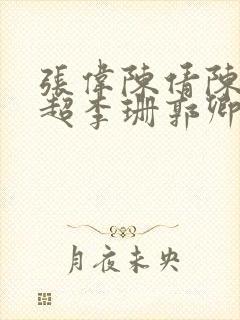 張偉陳倩陳
超李珊郭卿
月夜未央